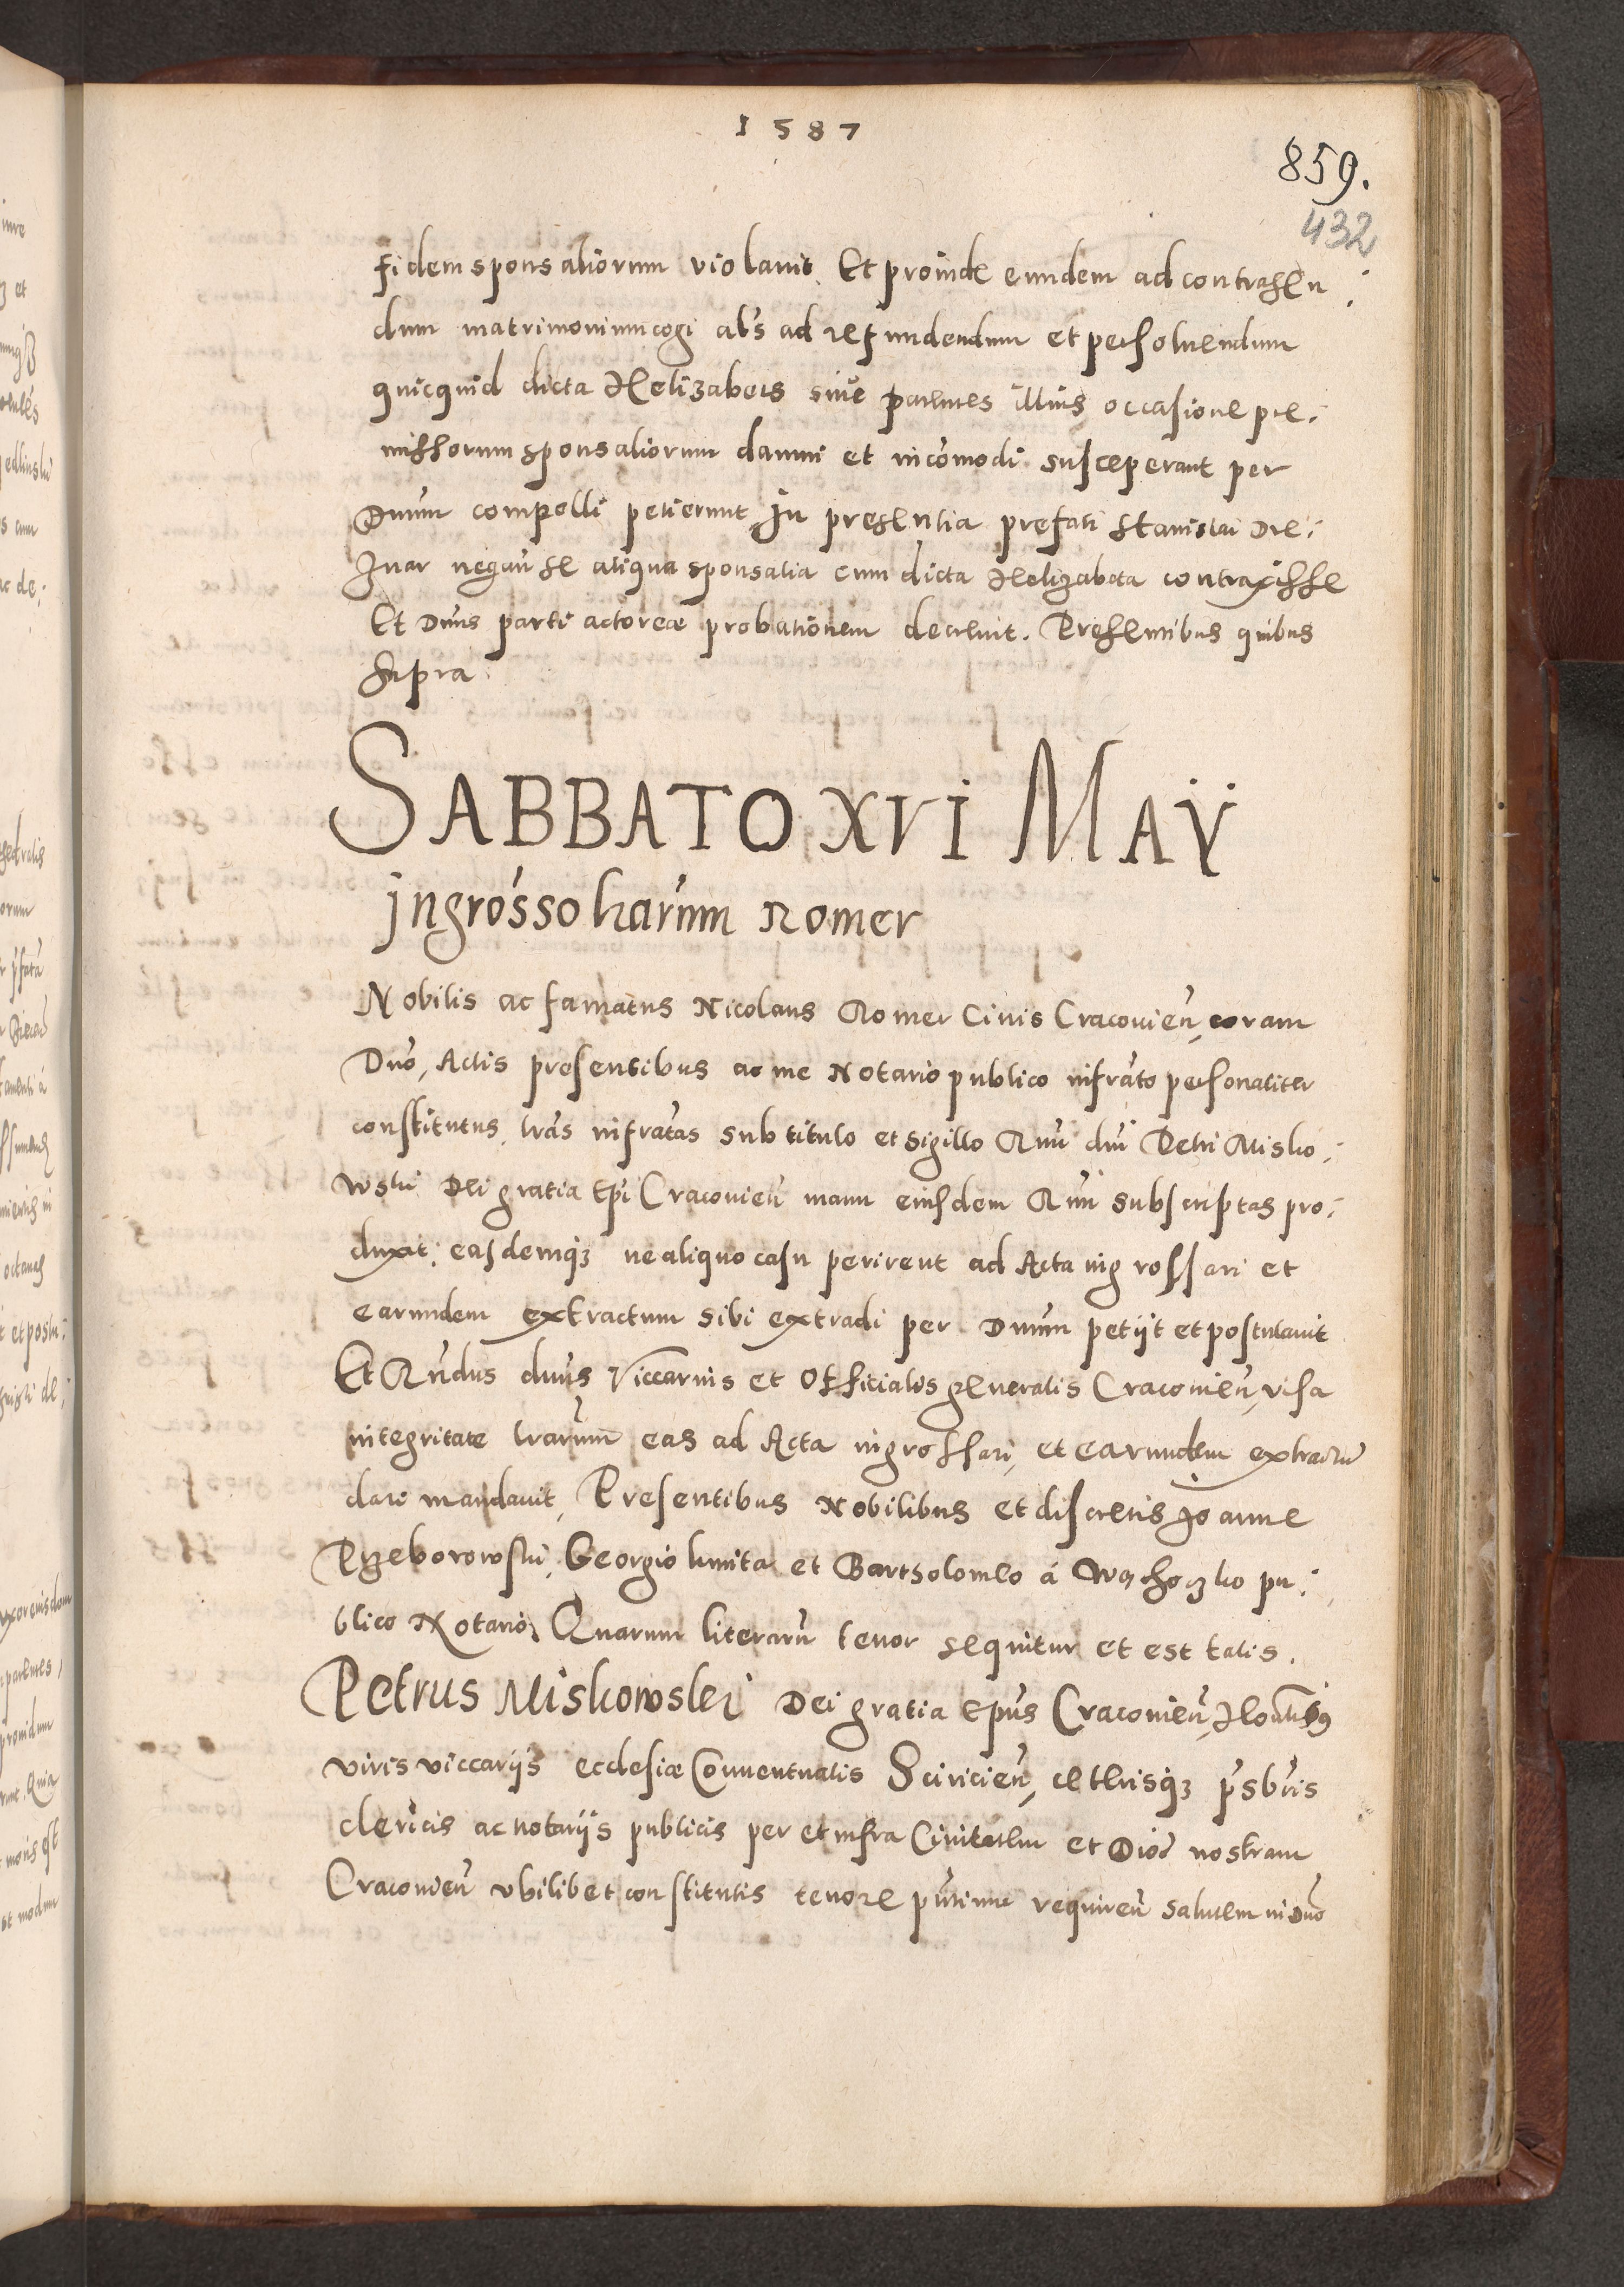 1587
859.
432
fidem sponsaliorum violavit. Et proinde eundem ad contrahen
dum matrimonium cogi al's ad refundendum et persoluendum
quicquid dicta Helizabets siue parentes illius occasione pre:
missorum sponsaliorum damni et incomodi susceperant per
Dnum compelli petierunt. In presentia prefati Stanislai
negan se aliqua sponsalia cum dicta Helizabeta contraxisse
Et Dnus parti actoreæ probationem decreuit. Presentibus quibus
supra
SABBATO XVI MAŸ
Ingrosso lrarum Romer
Nobilis ac famatus Nicolaus Romer Ciuis Cracouien, coram
Dno, Actis presentibus ac me Notario publico infrato personaliter
constitutus, lras infratas sub titulo et sigillo Rmi dni Petri Misko:
wski Dei gratia Epi Cracouien manu eiusdem Rmi subscriptas pro:
duxit: easdemq3 ne aliquo casu perirent ad Acta ingrossari et
earundem extractum sibi extradi per Dnum petijt et postulauit
Et Rndus dnus Viccarius et Officialis generalis Cracouien, visa
integritate lrarum eas ad Acta ingrossari, et earundem extractu
dari mandauit, Presentibus Nobilibus et discretis Joanne
Przeborowski, Georgio kmita et Bartholomeo á Wąchoczko pu:
blico Notario, Quarum literaru tenor sequitur et est talis.
Petrus Miskowskj Dei gratia Epus Cracouien,
viris viccarijs ecclesiæ Conuentualis Sciricien, ceterisq3 psbris
clericis ac notarijs publicis per et infra Ciuitatem et Dioc nostram
Cracouien vbilibet constitutis tenore pntium requiren salutem in Dno